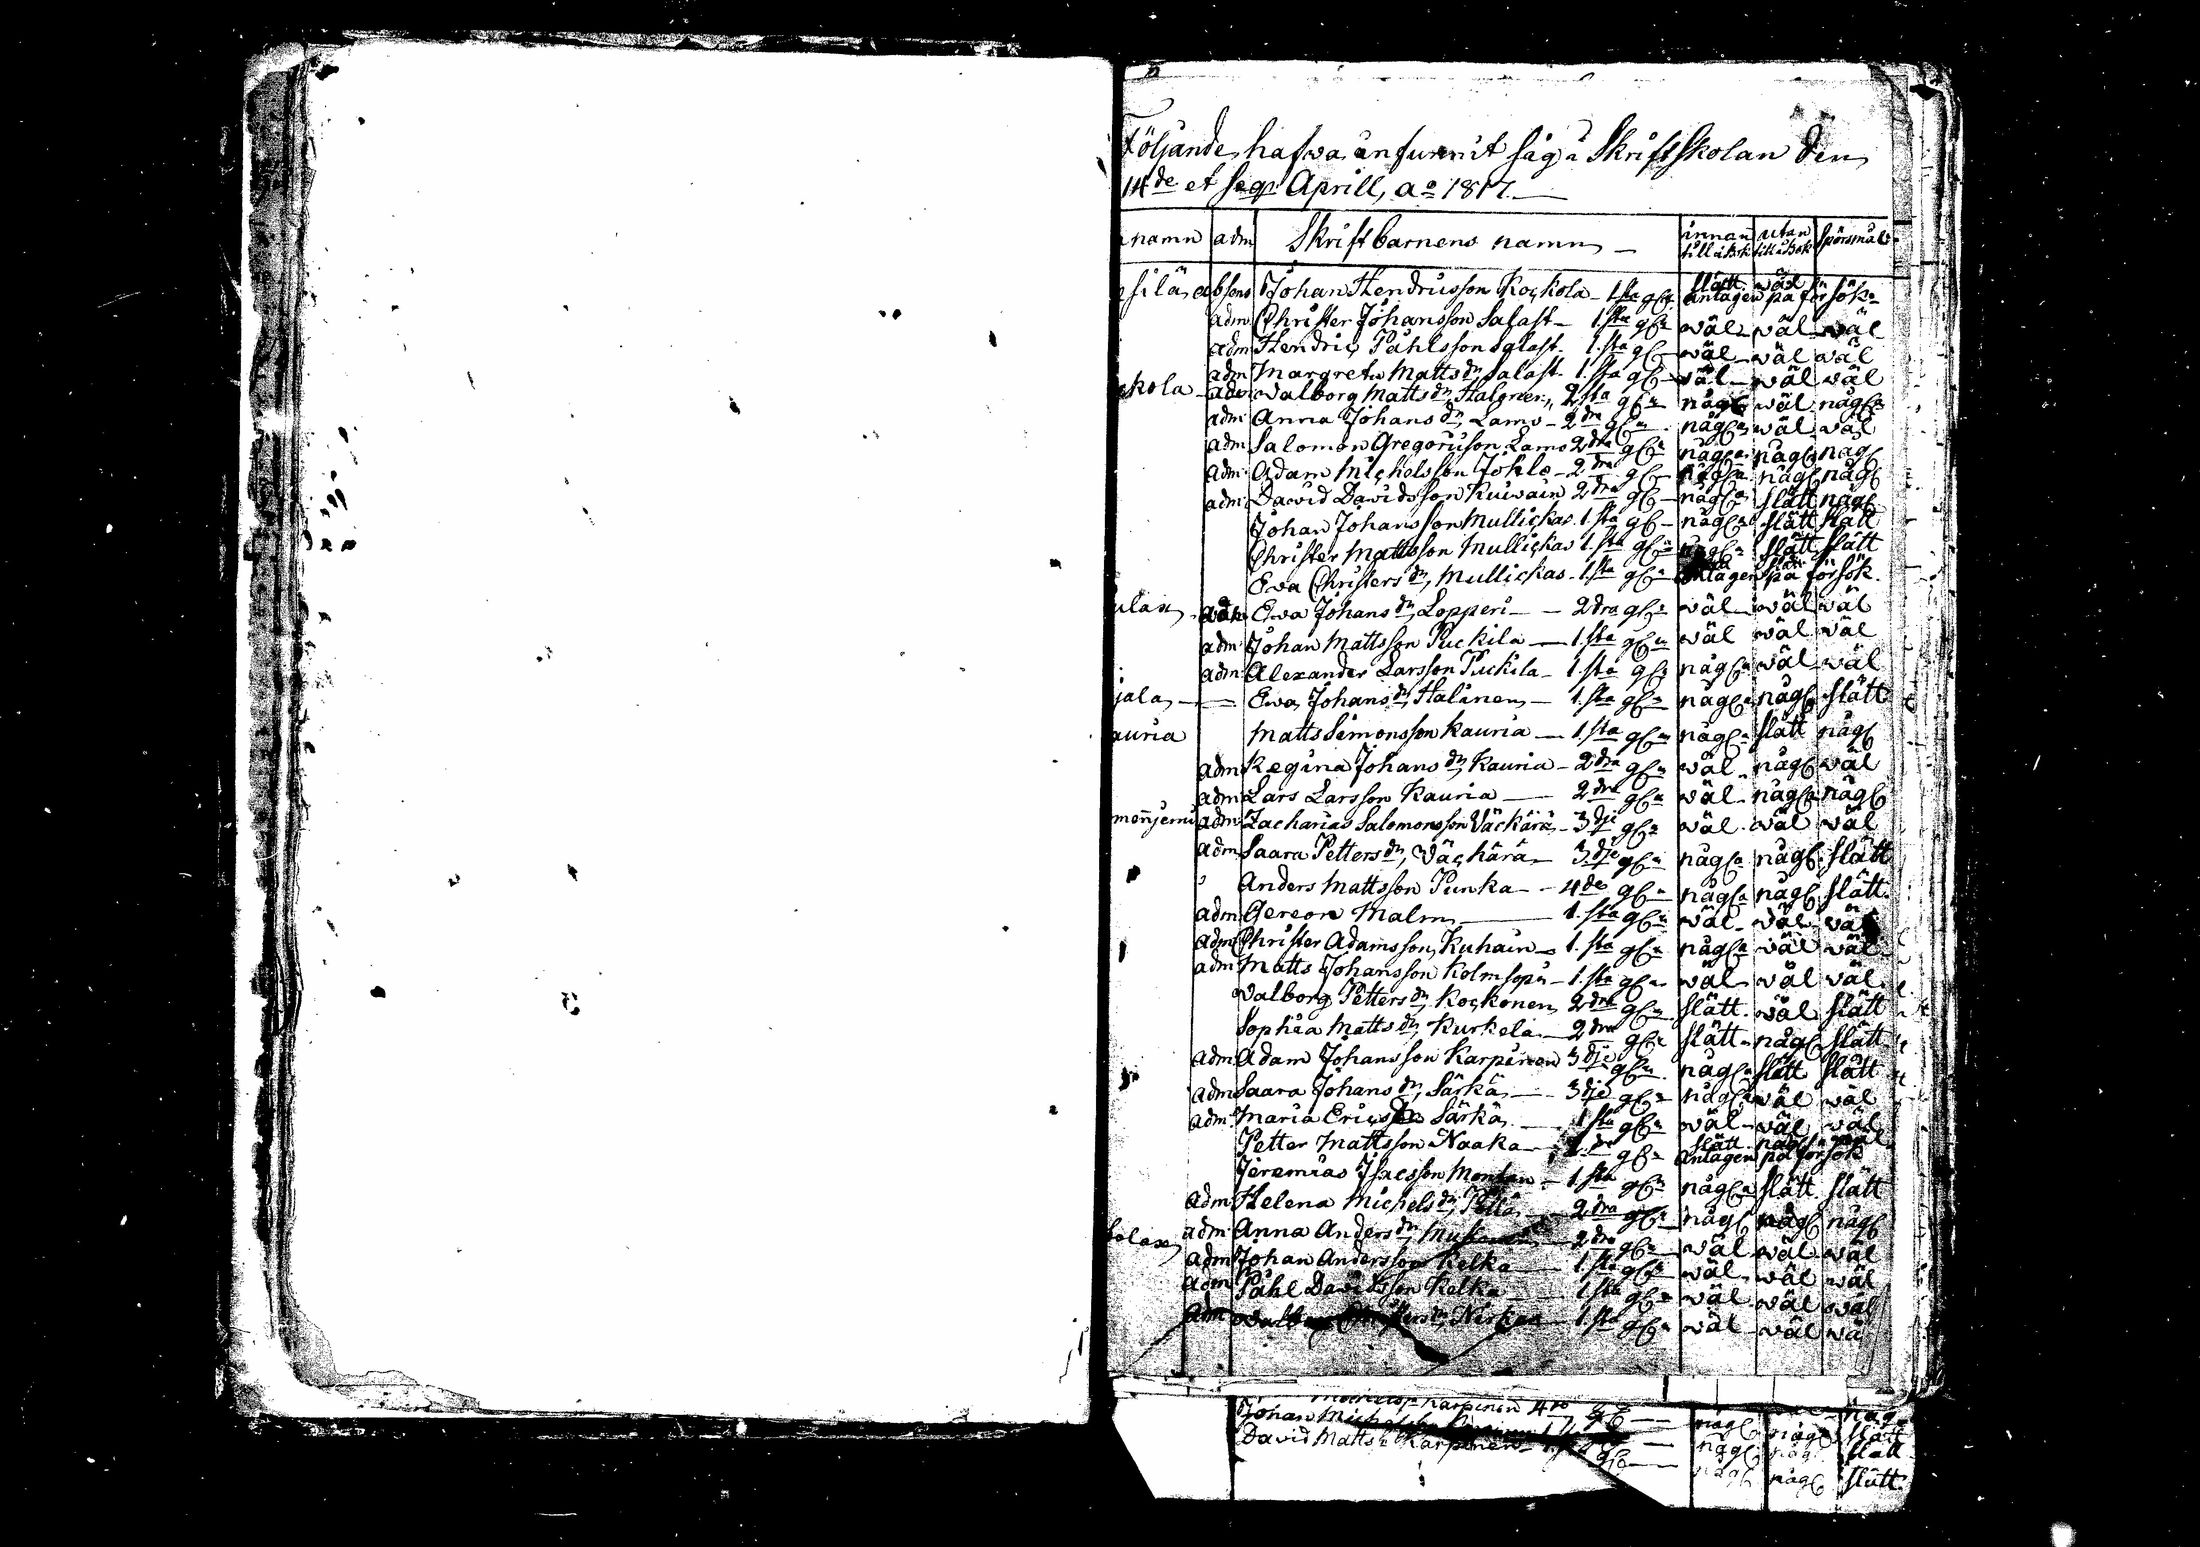 Följande hafwa infunnit sig i Skriftskolan den
14de et seqv Aprill, ao 1817.
namn adm Skriftbarnens namn innan till i Bok utan till i Bok Spörsmål
silä absens Johan Hendricsson Kockola 1sta ggn slätt wäl antagen på försök
adm Christer Johansson Salast 1sta ggn wäl wäl wäl
adm Hendric Påhlsson Salast 1sta gg wäl wäl wäl
adm Margreta Matts dr Salast 1sta gg wäl wäl wäl
kola adm Walborg Matts dr 2 gg någ wäl någ
adm Anna Johans dr Lamo 2dra gg någ wäl wäl
adm Salomon Gregorisson Lamo 2dra gg någ någ någ
adm Adam Michelsson 2dra gg någ någ någ
adm David Davidsson Kuivain 2dra gg någ slätt någ
Johan Johansson Mullickas 1sta gg någ slätt slätt
Christer Mattsson Mullickas 1sta gg någ slätt slätt
Eva Christers dr Mullickas 1sta gg antagen på försök
ulax adm Ewa Johans dr Lopperi 2dra gg wäl wäl wäl
adm Johan Mattsson Puckila 1sta gg wäl wäl wäl
adm Alexander Larsson Puckila 1sta gg någ wäl wäl
jala Ewa Johans dr Halinen 1sta gg någ någ slätt
auria Matts Simonsson Kauria 1sta gg någ slätt någ
adm Regina Johans dr Kauria 2dra gg wäl någ wäl
adm Lars Larsson Kauria 2dra gg wäl någ någ
adm Zacharias Salomonsson Väckärä 3dje gg wäl wäl wäl
adm Saara Petters dr Väckärä 3dje gg någ någ slätt
Anders Mattsson Punka 4de gg någ någ slätt
adm Gereon Malm 1sta gg wäl wäl wäl
adm Christer Adamsson Kuhain 1sta gg någ wäl wäl
adm Matts Johansson Kolmsopi 1sta gg wäl wäl wäl
Valborg Petters dr Kockonen 2dra gg slätt wäl slätt
Sophia Matts dr Kurkela 2dra gg slätt någ slätt
adm Adam Johansson Karpinen 3dje gg någ slätt slätt
adm Saara Johans dr Särkä 3dje gg någ wäl wäl
adm Maria Erics dr Särkä 1sta gg wäl wäl wäl
Petter Mattsson Naaka gg slätt någ wäl antagen på försök
Jeremias Isacsson Montan 1sta gg någ slätt slätt
adm Helena Michels dr 2dra gg någ någ någ
olax adm Anna Anders dr 2dra gg wäl wäl wäl
adm Johan Andersson Kelka 1sta gg wäl wäl wäl
adm Påhl Davidsson Kelka 1sta gg wäl wäl wäl
adm Christers dr 1sta gg wäl wäl wä
Karpinen 4de gg någ
Johan gg någ någ slätt
David Matts Karpinen gg någ någ slätt
någ någ slätt